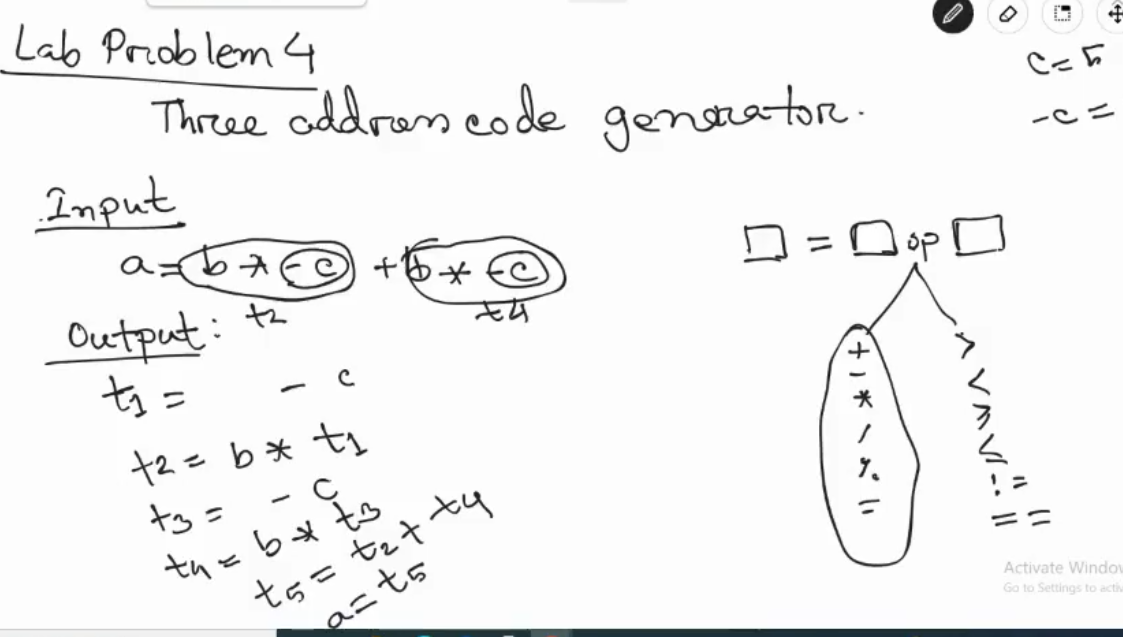 Lab Problem 4
c = 5
Three address code generator.
-c =
Input
a = b * -c + b * -c
t2 t4
□ = □ op □
Output:
t1 = - c
t2 = b * t1
t3 = - c
t4 = b * t3
t5 = t2 + t4
a = t5
+
-
*
/
%
=
>
<
≥
≤
! =
= =
Activate Window
Go to Settings to activ